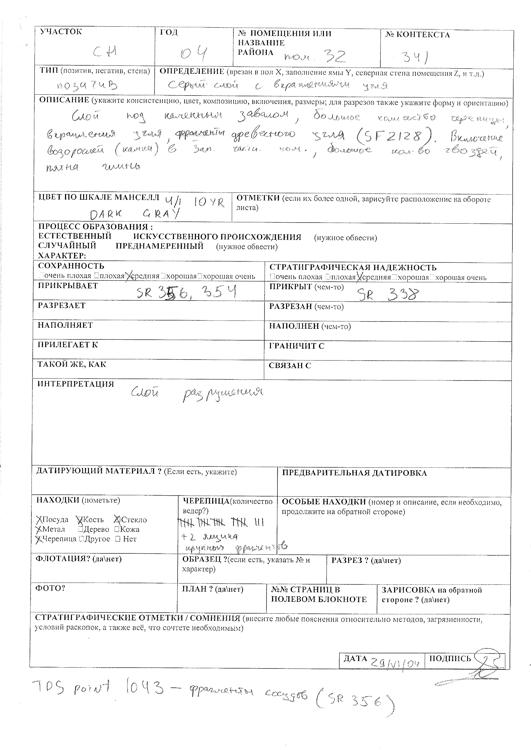 УЧАСТОК ГОД № ПОМЕЩЕНИЯ ИЛИ НАЗВАНИЕ РАЙОНА № КОНТЕКСТА
СН 04 пом 32 341
ТИП (позитив, негатив, стена) ОПРЕДЕЛЕНИЕ (врезан в пол X, заполнение ямы Y, северная стена помещения Z, и т.л.)
позитив Серый слой с вкраплениями угля
ОПИСАНИЕ (укажите консистенцию, цвет, композицию, включения, размеры; для разрезов также укажите форму и ориентацию)
Слой под каменным завалом, большое количество черепицы,
вкрапления угля, фрагменты древесного угля (SF2128). Включение
водорослей (камка) в зап. части пом., большое кол-во гвоздей,
пятна глины
ЦВЕТ ПО ШКАЛЕ МАНСЕЛЛ 4/1 10YR
DARK GRAY
ОТМЕТКИ (если их более одной, зарисуйте расположение на обороте листа)
ПРОЦЕСС ОБРАЗОВАНИЯ :
ЕСТЕСТВЕННЫЙ ИСКУССТВЕННОГО ПРОИСХОЖДЕНИЯ (нужное обвести)
СЛУЧАЙНЫЙ ПРЕДНАМЕРЕННЫЙ (нужное обвести)
ХАРАКТЕР:
СОХРАННОСТЬ СТРАТИГРАФИЧЕСКАЯ НАДЕЖНОСТЬ
□очень плохая □плохая Xсредняя □хорошая□хорошая очень □очень плохая □плохая Xсредняя □хорошая□хорошая очень
ПРИКРЫВАЕТ SR 356, 354 ПРИКРЫТ (чем-то) SR 338
РАЗРЕЗАЕТ РАЗРЕЗАН (чем-то)
НАПОЛНЯЕТ НАПОЛНЕН (чем-то)
ПРИЛЕГАЕТ К ГРАНИЧИТ С
ТАКОЙ ЖЕ, КАК СВЯЗАН С
ИНТЕРПРЕТАЦИЯ
Слой разрушения
ДАТИРУЮЩИЙ МАТЕРИАЛ ? (Если есть, укажите) ПРЕДВАРИТЕЛЬНАЯ ДАТИРОВКА
НАХОДКИ (пометьте)
XПосуда XКость XСтекло
XМеталл □Дерево □Кожа
XЧерепица □Другое □ Нет
ЧЕРЕПИЦА(количество ведер?)
+ 2 ящика
крупных фрагментов
ОСОБЫЕ НАХОДКИ (номер и описание, если необходимо, продолжите на обратной стороне)
ФЛОТАЦИЯ? (да\нет) ОБРАЗЕЦ ?(если есть, указать № и характер) РАЗРЕЗ ? (да\нет)
ФОТО? ПЛАН ? (да\нет) №№ СТРАНИЦ В ПОЛЕВОМ БЛОКНОТЕ ЗАРИСОВКА на обратной стороне ? (да\нет)
СТРАТИГРАФИЧЕСКИЕ ОТМЕТКИ / СОМНЕНИЯ (внесите любые пояснения относительно методов, загрязненности,
условий раскопок, а также всё, что сочтете необходимым)
ДАТА 29/VI/04 ПОДПИСЬ
TDS point 1043 – фрагменты сосудов (SR 356)